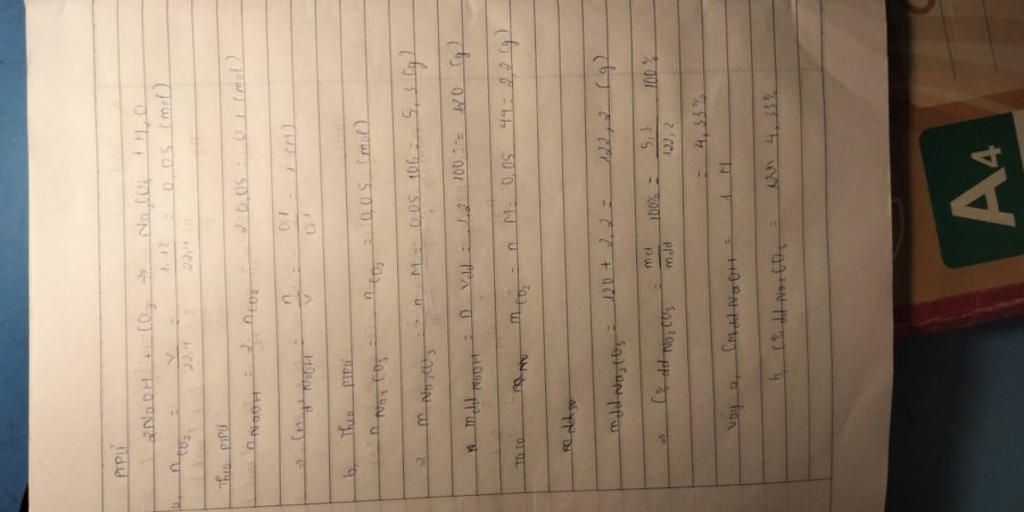 PTPƯ
2NaOH + CO₂ → Na₂CO₃ + H₂O
a, nCO₂ = V/22,4 = 1,12/22,4 = 0,05 (mol)
Theo PTPƯ
nNaOH = 2 nCO₂ = 2.0,05 = 0,1 (mol)
⇒ CMdd NaOH = n/V = 0,1/0,1 = 1 (M)
b, Theo PTPƯ
nNa₂CO₃ = nCO₂ = 0,05 (mol)
⇒ mNa₂CO₃ = n. M = 0,05 . 106 = 5,3 (g)
mdd NaOH = D Vdd = 1,2 . 100 = 120 (g)
mCO₂ = n M = 0,05 . 44 = 2,2 (g)
mdd Na₂CO₃ = 120 + 2,2 = 122,2 (g)
⇒ C% dd Na₂CO₃ = mct/mdd . 100% = 5,3/122,2 . 100%
= 4,33%
Vậy a, CMdd NaOH = 1 M
b, C% dd Na₂CO₃ = 4,33%
A4